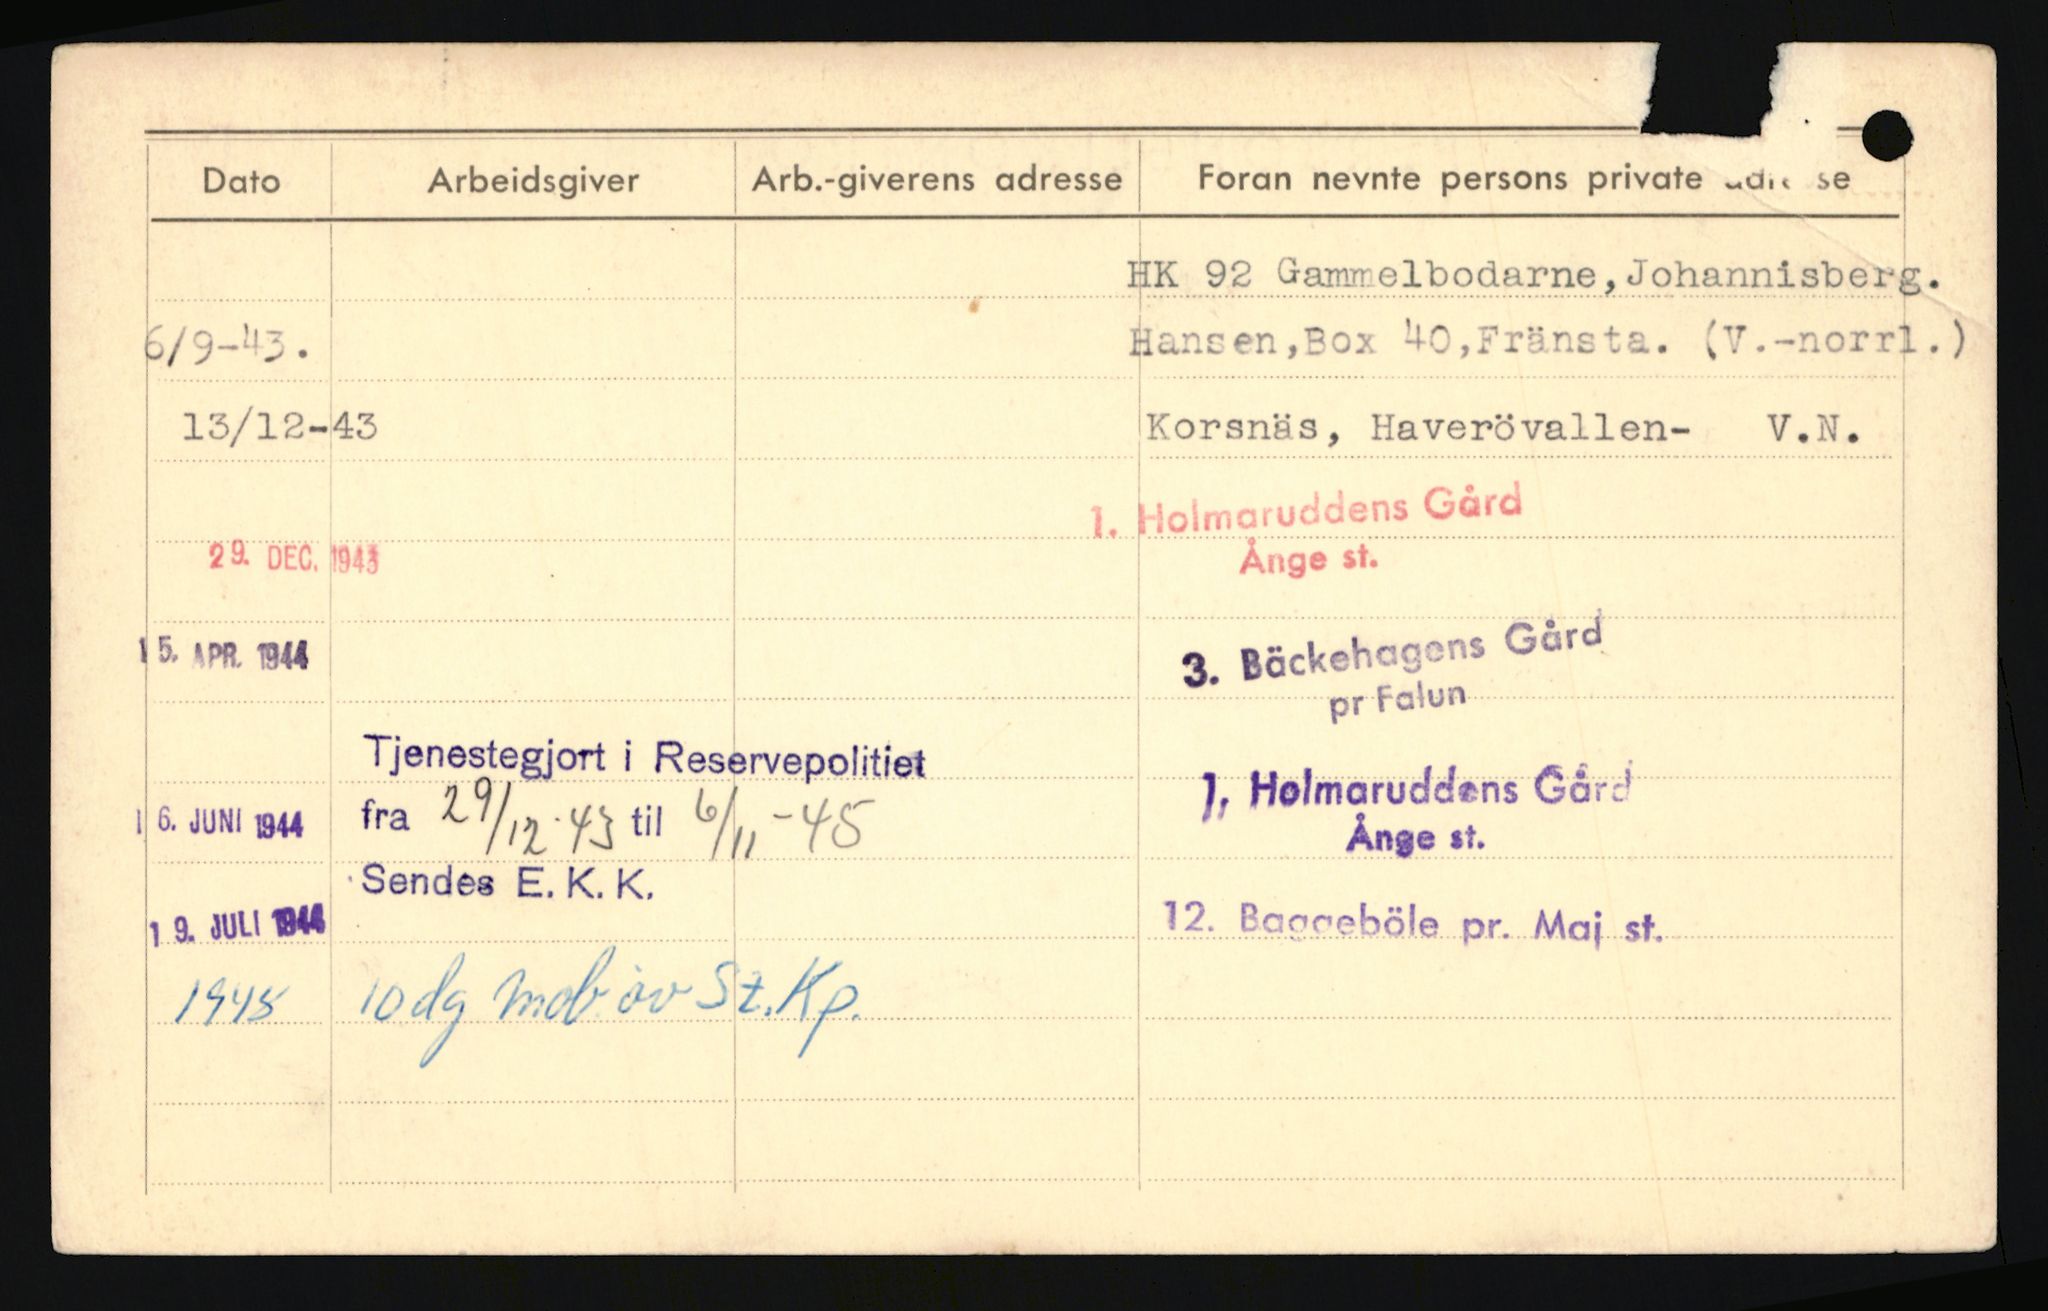 Dato Arbeidsgiver Arb.-giverens adresse Foran nevnte persons private
HK 92 Gammelbodarne,Johannisberg.
6/9-43. Hansen,Box 40,Fränsta. (V.-norrl.)
13/12-43 Korsnäs, Haverövallen- V.N.
1. Holmaruddens Gård
29. DEC. 1943 Ånge st.
15. APR. 1944 3. Bäckehagens Gård
pr Falun
Tjenestegjort i Reservepolitiet
16. JUNI 1944 fra 29/12-43 til 6/11-45 1. Holmaruddens Gård
Ånge st.
Sendes E. K. K.
19. JULI 1944 12. Baggeböle pr. Maj st.
1948 10 dg mob. öv St. Kp.